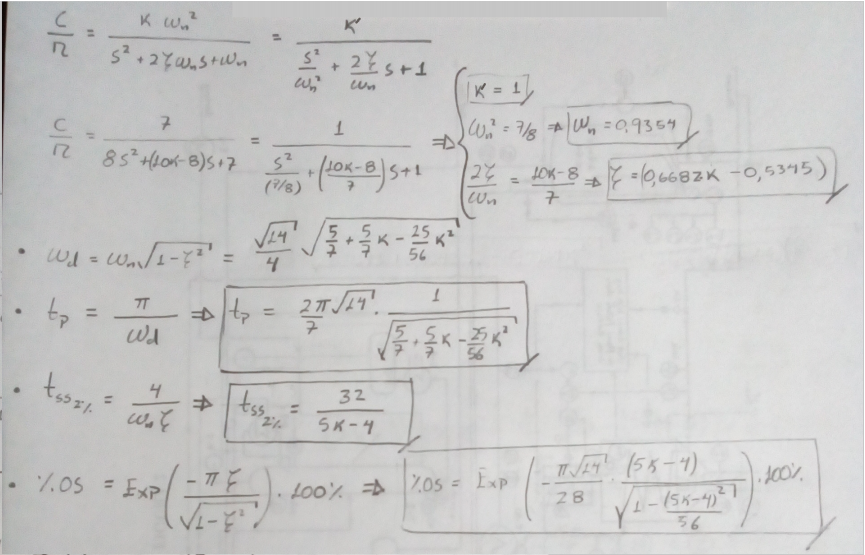 C/R = K ωn² / (S² + 2ζωnS + ωn) = K' / (S²/ωn² + 2ζ/ωn S + 1)
C/R = 7 / (8S² + (10K-8)S + 7) = 1 / (S²/(7/8) + (10K-8/7)S + 1) ⇒ {
K' = 1
ωn² = 7/8 ⇒ ωn = 0,9354
2ζ/ωn = 10K-8/7 ⇒ ζ = (0,6682K - 0,5345)
• ωd = ωn√(1-ζ²) = √14/4 √(5/7 + 5/7 K - 25/56 K²)
• tp = π/ωd ⇒ tp = 2π√14/7 · 1/√(5/7 + 5/7 K - 25/56 K²)
• tss2% = 4/(ωn ζ) ⇒ tss2% = 32/(5K-4)
• %OS = Exp(-πζ/√(1-ζ²)) · 100% ⇒ %OS = Exp(-π√14/28 · (5K-4)/√(1 - (5K-4)²/56)) · 100%